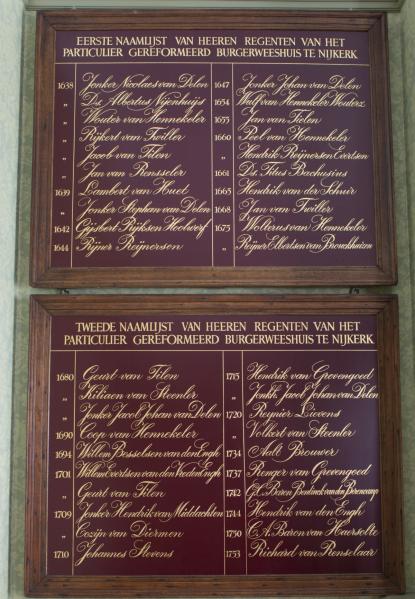 EERSTE NAAMLIJST VAN HEEREN REGENTEN VAN HET
PARTICULIER GEREFORMEERD BURGERWEESHUIS TE NIJKERK
1638 Jonker Nicolaes van Delen
" Ds. Albertus Nijenhuijs
" Wouter van Hennekeler
" Rijkert van Twiller
" Jacob van Filen
" Jan van Rensseler
1639 Lambert van Huet
" Jonker Stephan van Delen
1642 Gijsbert Rijksen Hoolwerf
1644 Rijner Reijnersen
1647 Jonker Johan van Delen
1654 Wulf van Hennekeler Wouterz
1655 Jan van Tielen
1660 Peel van Hennekeler
" Hendrik Reijnersten Evertsen
1661 Ds. Titus Bachusius
1665 Hendrik van der Schuir
1668 Jan van Twiller
1675 Wolterus van Hennekeler
" Reijner Elbertsen van Brouckhuizen
TWEEDE NAAMLIJST VAN HEEREN REGENTEN VAN HET
PARTICULIER GEREFORMEERD BURGERWEESHUIS TE NIJKERK
1680 Geurt van Filen
" Kiliaen van Steenler
" Jonker Jacob Johan van Delen
1690 Coop van Hennekeler
1694 Willem Besselsen van den Engh
1701 Willem Evertsen van der Veeden Engh
" Geurt van Filen
1709 Jonker Hendrik van Middachten
" Cozijn van Diermen
1710 Johannes Stevens
1715 Hendrik van Grevengoed
" Jonkh. Jacob Johan van Delen
1720 Reijnier Lievens
" Volkert van Steenler
1734 Aalt Brouwer
1737 Renger van Greevengoed
1742 Baron Bentinck van den
1744 Hendrik van den Engh
1750 C.A. Baron van Haersolte
1753 Richard van Renselaar